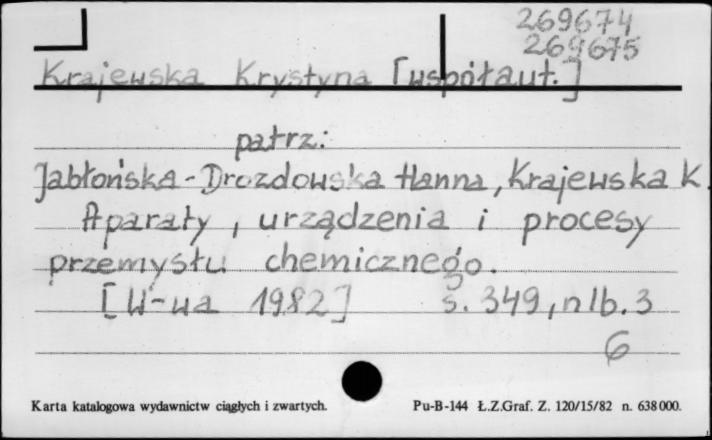 269674
269675
Krajewska Krystyna [współaut.]
patrz:
Jabłońska-Drozdowska Hanna, Krajewska K.
Aparaty, urządzenia i procesy
przemysłu chemicznego.
[W-wa 1982] s. 349, nlb. 3
6
Karta katalogowa wydawnictw ciągłych i zwartych. Pu-B-144 Ł.Z.Graf. Z. 120/15/82 n. 638000.